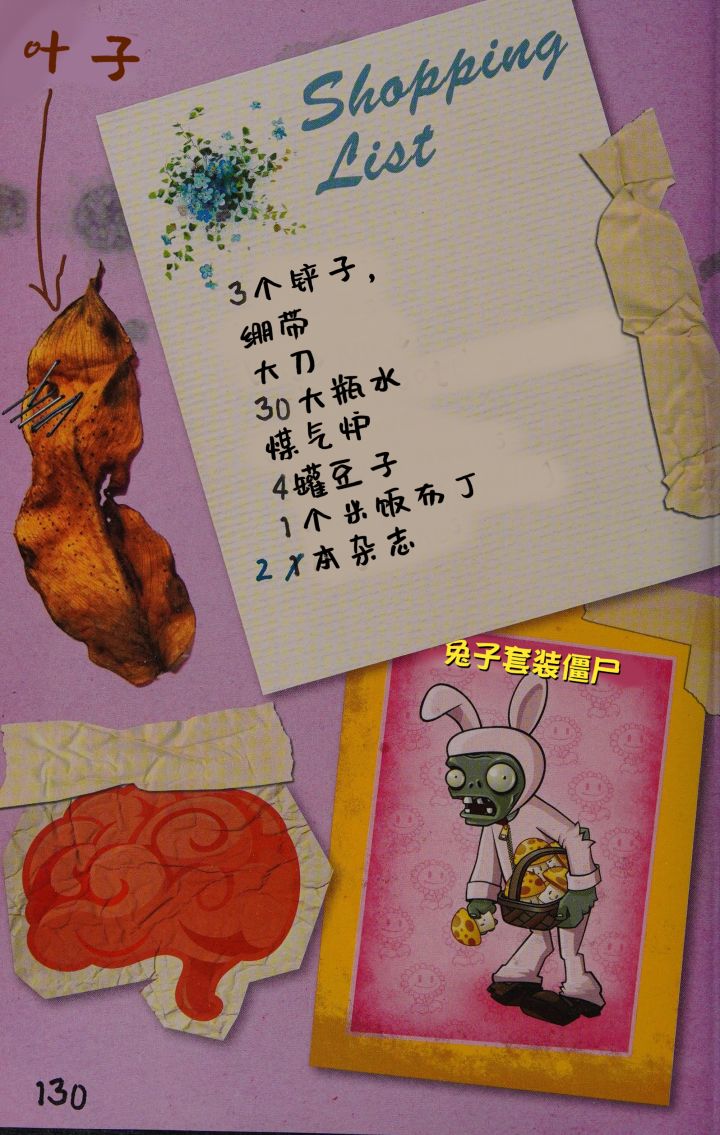 叶子
Shopping
List
3个锌子，
绷带
大刀
30大瓶水
煤气炉
4罐豆子
1个米饭布丁
2X本杂志
兔子套装僵尸
130